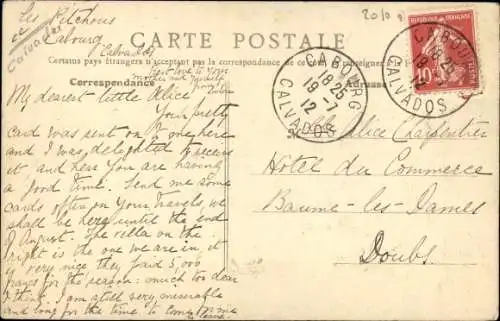 Les Pitchous
Cabourg
Calvados
Calvados
CARTE POSTALE
Certains pays étrangers n'acceptent pas la correspondance de ce
Correspondance
best love to your
mother and
from
My dearest little Alice
Your pretty
card was sent on to me here
and I was delighted to receive
it and hear you are having
a good time. Send me some
cards often on your travels, we
shall be here until the end
of August. The villa on the
right is the one we are in, it
is very nice they paid 5,000
francs for the season: much too dear
I think. I am still very miserable
and long for the time to come
2010
RÉPUBLIQUE FRANÇAISE
10
CABOURG
18 25
19-7
12
CALVADOS
CABOURG
18 25
12
CALVADOS
Adresse
Mlle Alice Charpentier
Hôtel du Commerce
Baume-les-Dames
Doubs